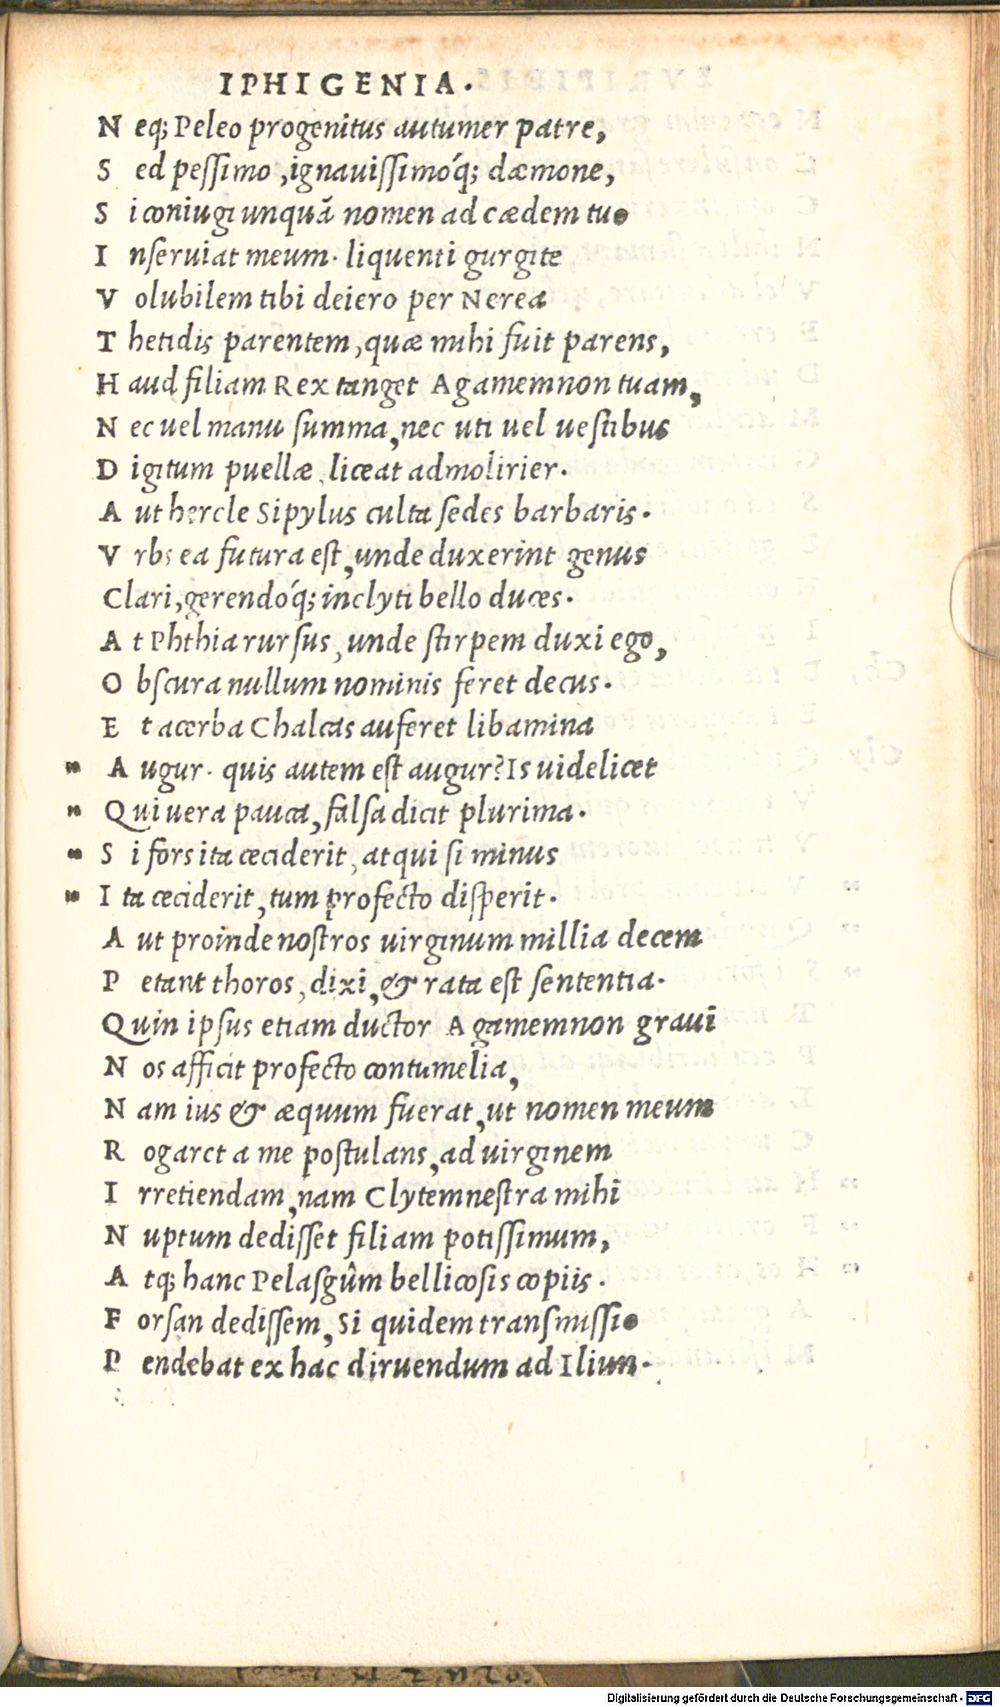 IPHIGENIA.
N eq; Peleo progenitus autumer patre,
S ed pessimo, ignauissimóq; dæmone,
S i coniugi unquā nomen ad cædem tuo
I nseruiat meum. liquenti gurgite
V olubilem tibi deiero per Nerea
T hetidis parentem, quæ mihi fuit parens,
H aud filiam Rex tanget Agamemnon tuam,
N ec uel manu summa, nec uti uel uestibus
D igitum puellæ liceat admolirier.
A ut hercle Sipylus culta sedes barbaris.
V rbs ea futura est, unde duxerint genus
Clari, gerendóq; inclyti bello duces.
A t Phthia rursus, unde stirpem duxi ego,
O bscura nullum nominis feret decus.
E t acerba Chalcas auferet libamina
" A ugur. quis autem est augur? Is uidelicet
" Qui uera pauca, falsa dicit plurima.
" S i fors ita ceciderit, at qui si minus
" I ta ceciderit, tum profecto disperit.
A ut proinde nostros uirginum millia decem
P etant thoros, dixi, & rata est sententia.
Quin ipsus etiam ductor Agamemnon graui
N os afficit profecto contumelia,
N am ius & æquum fuerat, ut nomen meum
R ogaret a me postulans, ad uirginem
I rretiendam, nam Clytemnestra mihi
N uptum dedisset filiam potissimum,
A tq; hanc Pelasgûm bellicosis copiis.
F orsan dedissem, Si quidem transmissio
P endebat ex hac diruendum ad Ilium.
Digitalisierung gefördert durch die Deutsche Forschungsgemeinschaft - DFG